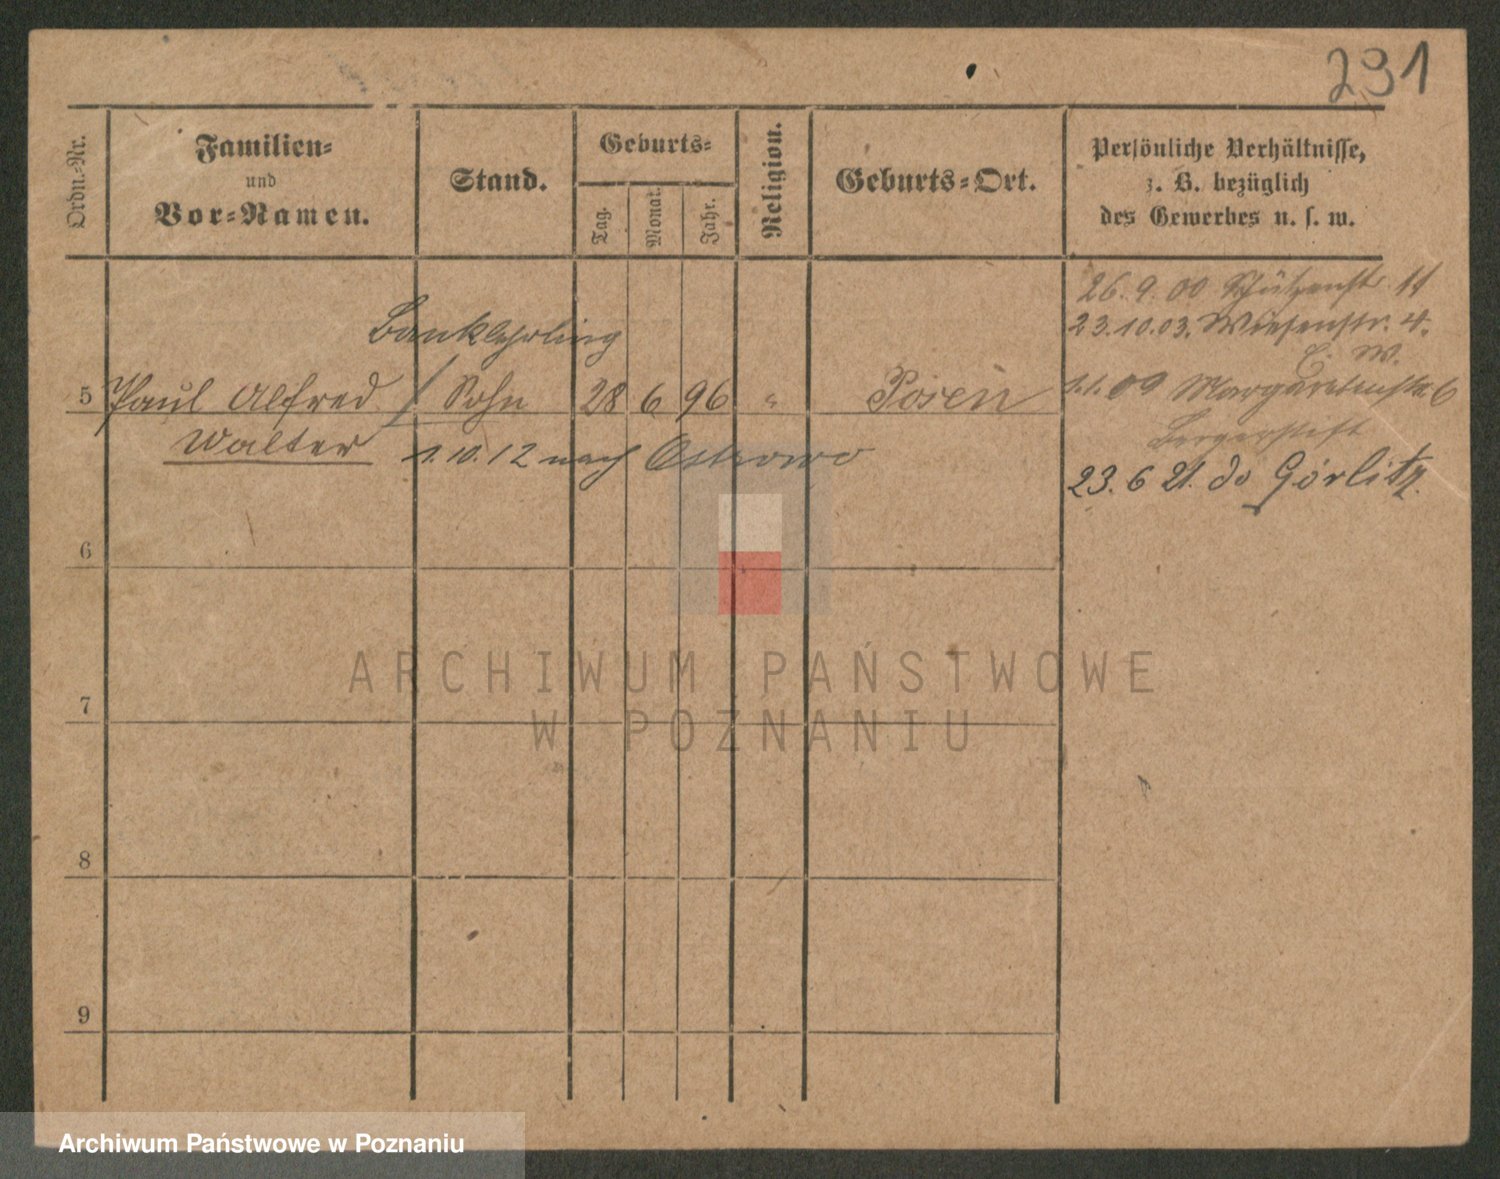 291
Ordn.-Nr.
Familien-
und
Vor-Namen.
Stand.
Geburts-
Tag.
Monat.
Jahr.
Religion.
Geburts-Ort.
Persönliche Verhältnisse,
z. B. bezüglich
des Gewerbes u. s. w.
26. 9. 00 Schützenstr. 11
23. 10. 03. Wiesenstr. 4.
Banklehrling
5 Paul Alfred Sohn 28 6 96 " Posen
Walter 1. 10. 12 nach Ostrowo
1. 1. 09 Margaretenstr. 6
Bergerstift
23. 6 21. do Görlitz.
6
7
8
9
ARCHIWUM PAŃSTWOWE
W POZNANIU
Archiwum Państwowe w Poznaniu